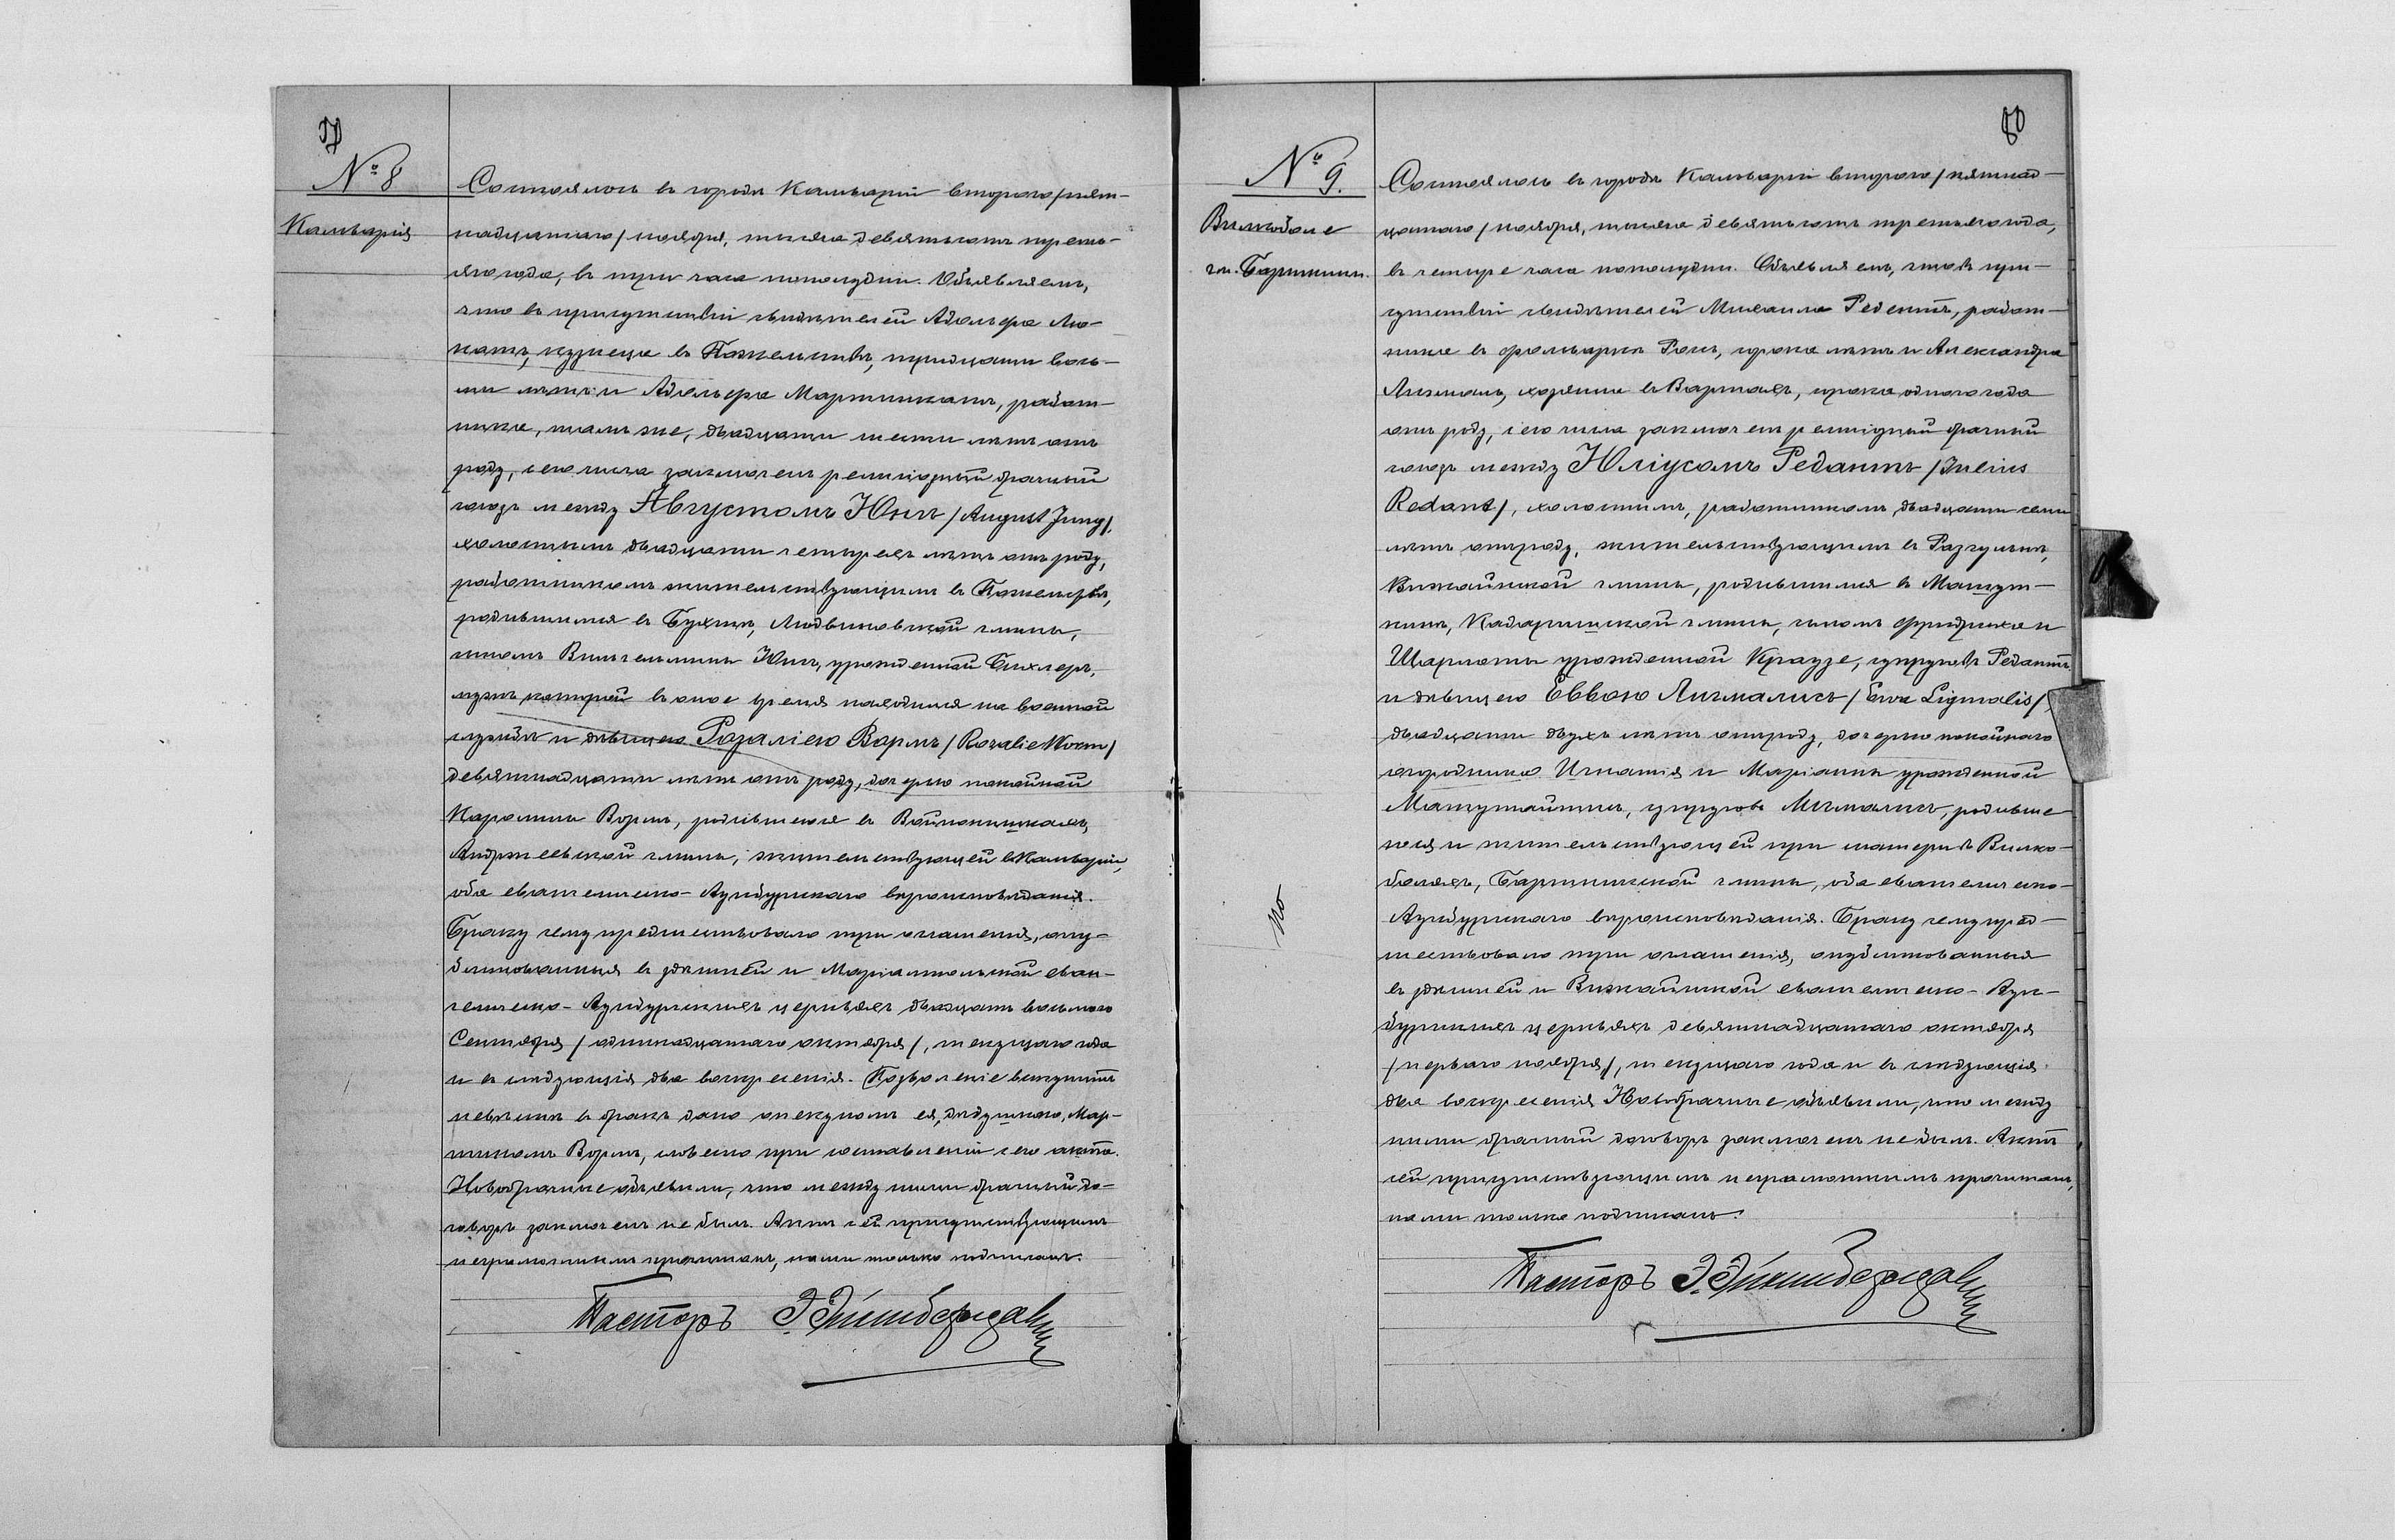 № 8
Кальварія
Состоялось въ городѣ Кальваріи второго /пят-
надцатаго/ ноября, тысяча девятьсотъ треть-
яго года, въ три часа пополудни. Объявляемъ,
что въ присутствіи свидѣтелей Адольфа Лю-
натъ, кузнеца въ тридцати вось-
ми лѣтъ и Адольфа Мартинкатъ, работ-
ника, тамъ же, двадцати шести лѣтъ отъ
роду, сего числа заключенъ религіозный брачный
союзъ между Августомъ Юнгъ /August Jung/,
холостымъ двадцати четырехъ лѣтъ отъ роду,
работникомъ жительствующимъ въ
родившимся въ Бухтѣ, Людвиновской гмины,
сыномъ Вильгельмины Юнгъ, урожденной Бихлеръ,
мужъ которой въ оное время находился на военной
службѣ и дѣвицею Розаліею Вормъ /Rozalie Worm/
девятнадцати лѣтъ отъ роду, дочерью покойной
Каролины Вормъ, родившеюся въ
Андржеевской гмины, жительствующей въ Кальваріи,
оба евангелическо-Аугсбургскаго вѣроисповѣданія.
Браку сему предшествовало три оглашенія, опу-
бликованныя въ здѣшней и Маріампольской еван-
гелическо-Аугсбургскихъ церквахъ двадцать восьмого
Сентября /одиннадцатаго октября/, текущаго года
и въ слѣдующія два воскресенія. Позволеніе вступить
невѣстѣ въ бракъ дано опекуномъ ея, дѣдушкою, Мар-
тиномъ Вормъ, словесно при составленіи сего акта.
Новобрачные объявили, что между ними брачный до-
говоръ заключенъ не былъ. Актъ сей присутствующимъ
неграмотнымъ прочитанъ, нами только подписанъ.
Пасторъ
№ 9.
Вилкоболе
гм. Бартники.
Состоялось въ городѣ Кальваріи второго /пятнад-
цатаго/ ноября, тысяча девятьсотъ третьяго года,
въ четыре часа пополудни. Объявляемъ, что въ при-
сутствіи свидѣтелей Михаила Редентъ, работ-
ника въ фольваркѣ сорока лѣтъ и Александра
хозяина въ сорока одного года
отъ роду, сего числа заключенъ религіозный брачный
союзъ между Юліусомъ Редантъ /Julius
Redant/, холостымъ, работникомъ, двадцати семи
лѣтъ отъ роду, жительствующимъ въ
Вижайнской гмины, родившимся въ
Кадаришской гмины, сыномъ Фридриха и
Шарлоты урожденной Краузе, супруговъ Редантъ
и дѣвицею Еввою Лигмалисъ /Ewa Ligmalis/,
двадцати двухъ лѣтъ отъ роду, дочерью покойнаго
огородника Игнатія и Маріанны урожденной
супруговъ Лигмалисъ, родивше-
юся и жительствующей при матери въ Вилко-
боляхъ, Бартникской гмины, оба евангелическо-
Аугсбургскаго вѣроисповѣданія. Браку сему пред-
шествовало три оглашенія, опубликованныя
въ здѣшней и Вижайнской евангелическо-Ауг-
сбургскихъ церквахъ девятнадцатаго октября
/перваго ноября/, текущаго года и въ слѣдующія
два воскресенія Новобрачные объявили, что между
ними брачный договоръ заключенъ не былъ. Актъ
сей присутствующимъ неграмотнымъ прочитанъ,
нами только подписанъ.
Пасторъ